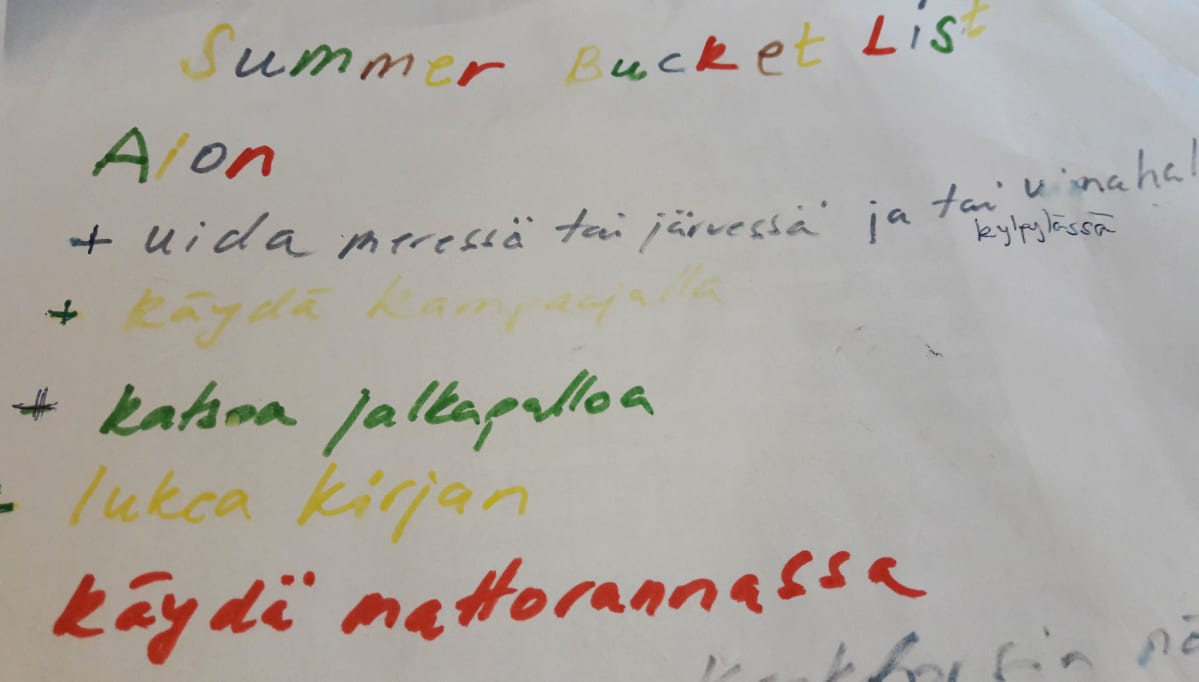 Summer Bucket List
Aion
+ uida meressä tai järvessä ja tai uimahal
kylpylässä
+ käydä kampaajalla
+ katsoa jalkapalloa
lukea kirjan
käydä mattorannassa